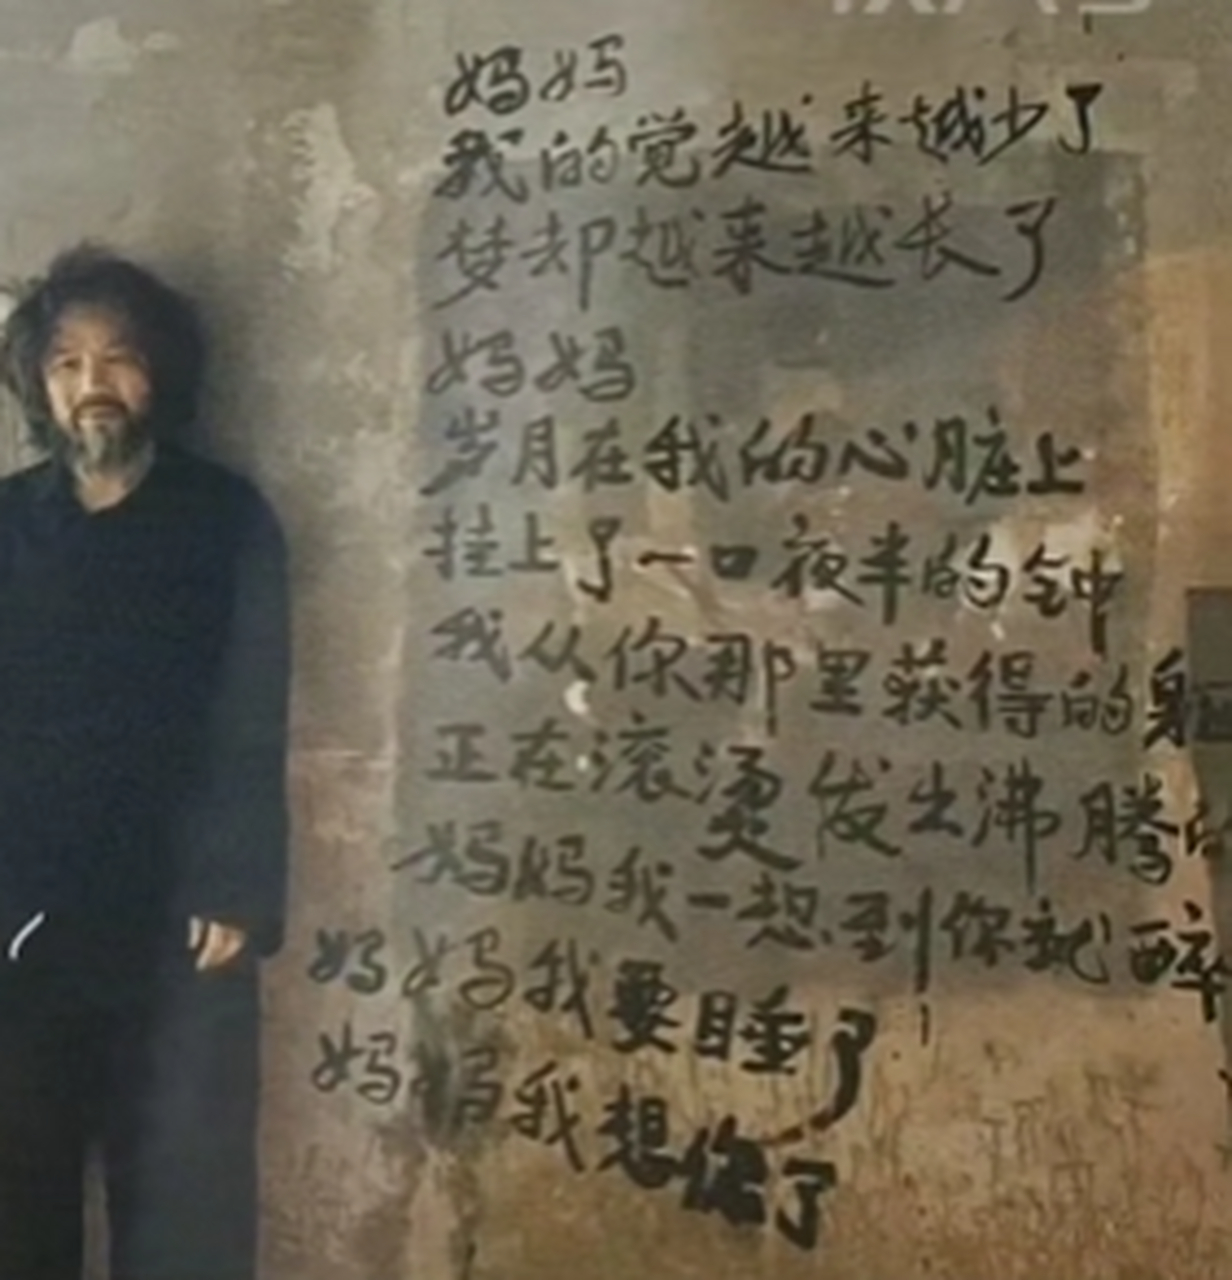 妈妈
我的觉越来越少了
梦却越来越长了
妈妈
岁月在我的心脏上
挂上了一口夜半的钟
我从你那里获得的
正在滚烫发出沸腾
妈妈我一想到你就醉
妈妈我要睡了
妈妈我想你了